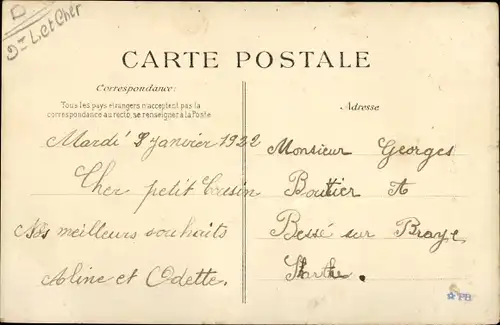 D
Dt L. et Cher
CARTE POSTALE
Correspondance:
Tous les pays étrangers n'acceptent pas la
correspondance au recto, se renseigner à la Poste
Mardi 8 janvier 1922
Cher petit Cousin
Nos meilleurs souhaits
Aline et Odette.
Adresse
Monsieur Georges
Boutier A
Bessé sur Braye
Sarthe.
PH